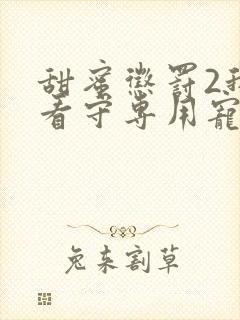 甜蜜惩罚2我
看守专用宠
兔来割草